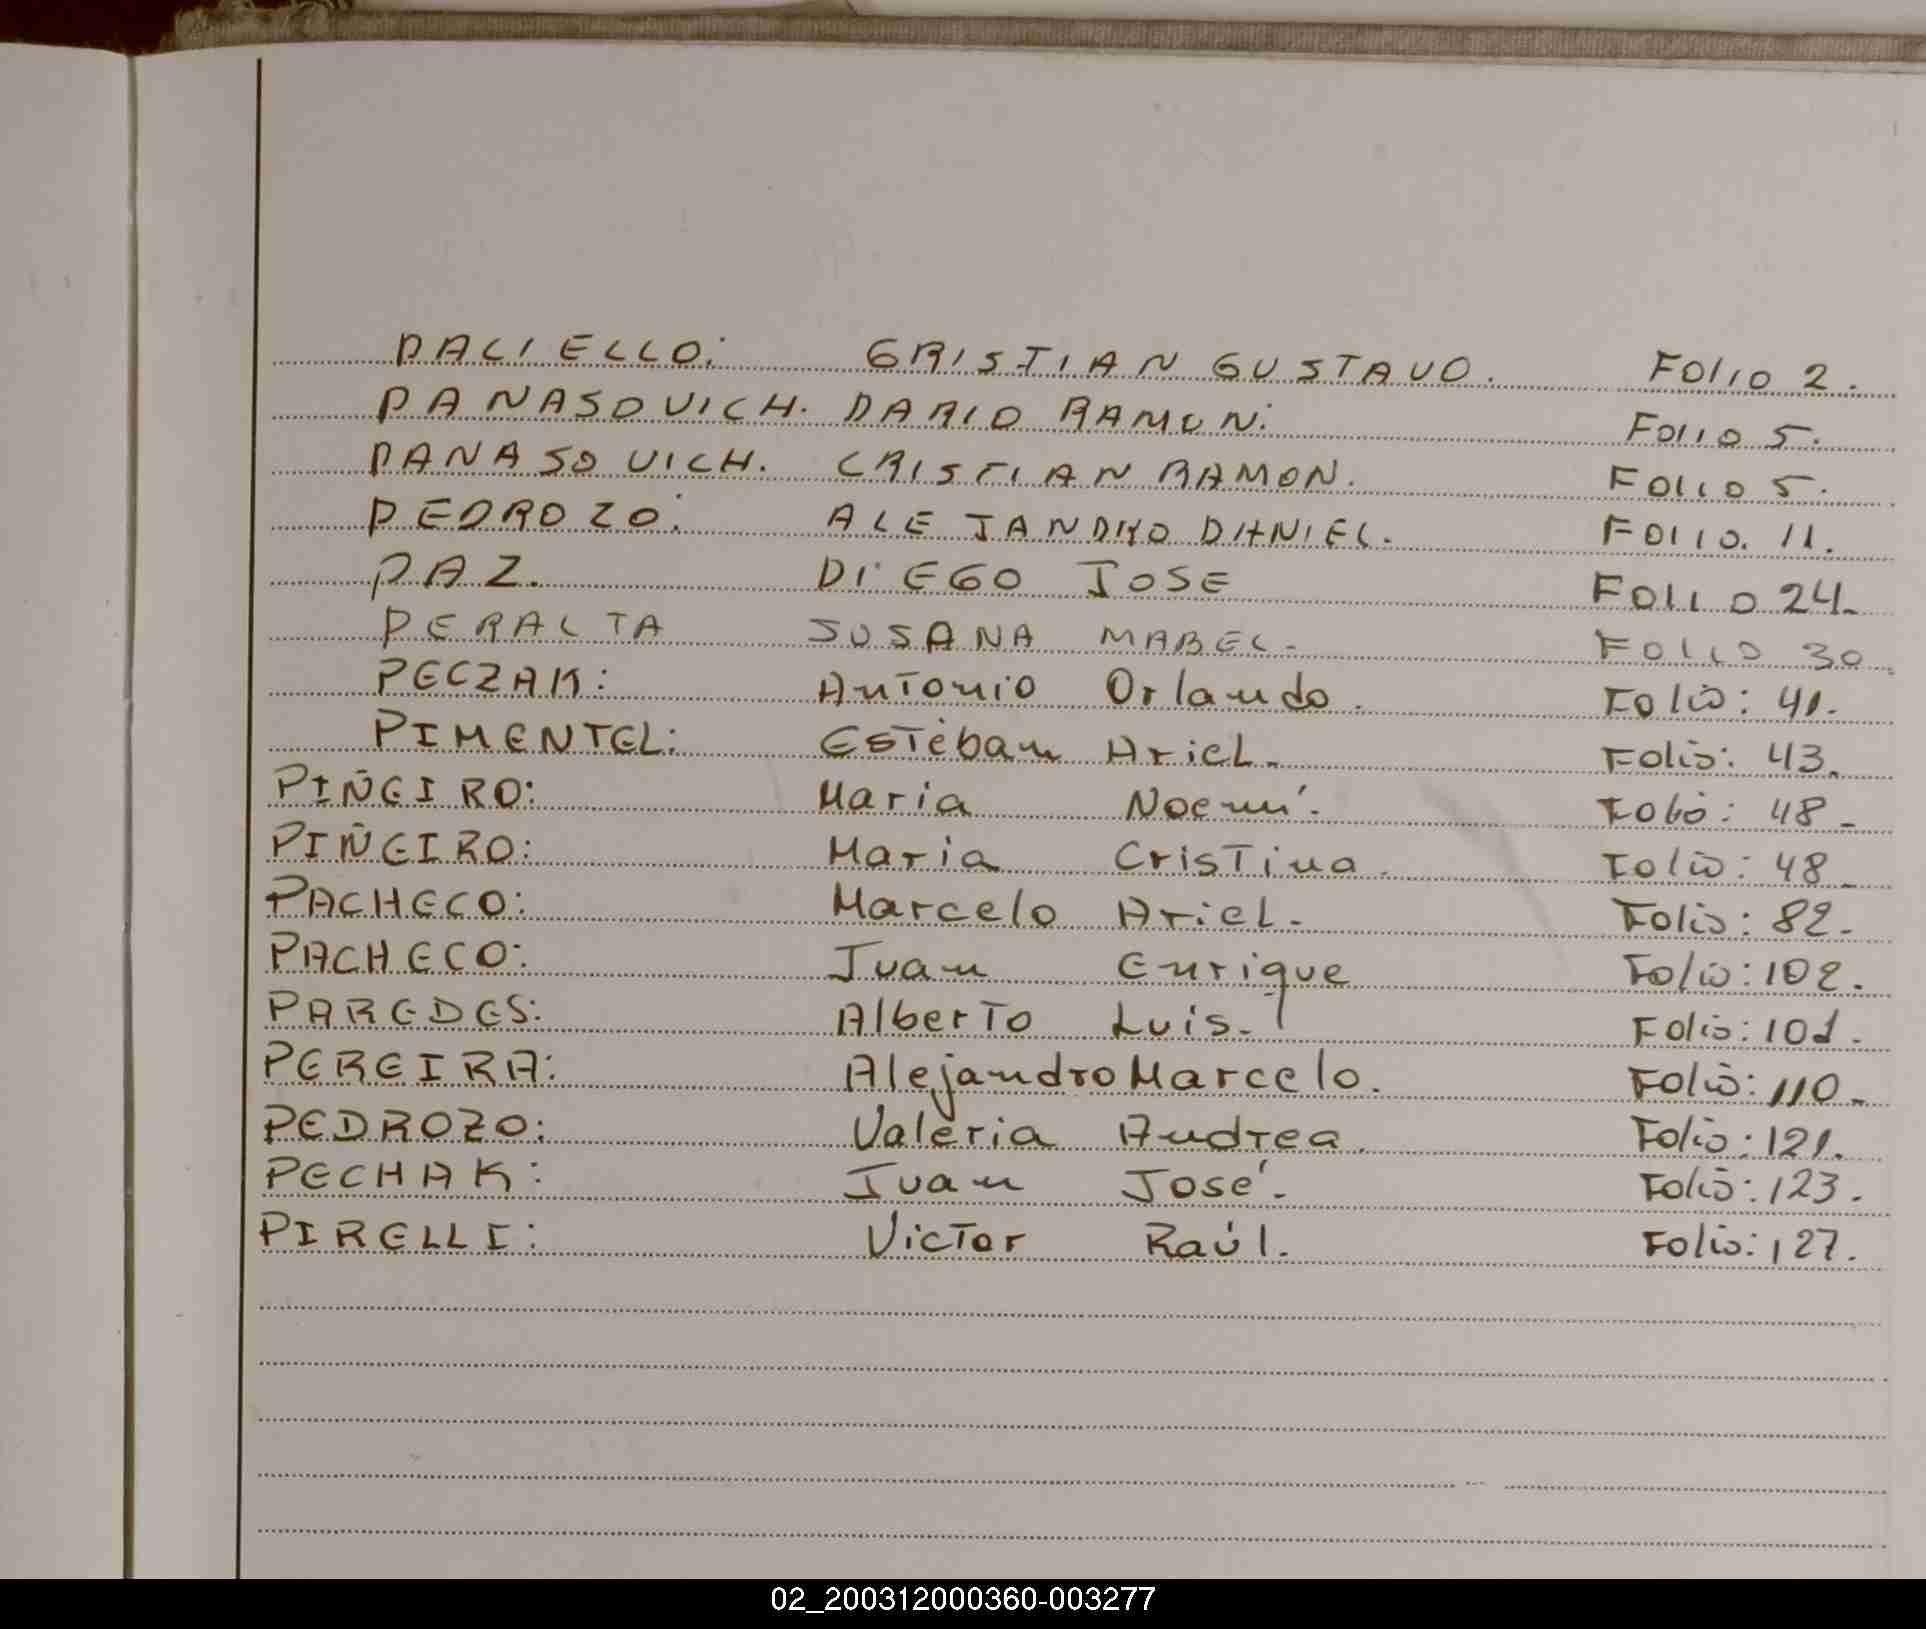 PACIELLO: CRISTIAN GUSTAVO. FOLIO 2.
PANASOVICH. DARIO RAMON. FOLIO 5.
PANASOVICH. CRISTIAN RAMON. FOLIO 5.
PEDROZO. ALEJANDRO DANIEL. FOLIO. 11.
PAZ. DIEGO JOSE FOLIO 24.
PERALTA SUSANA MABEL. FOLIO 30
PECZAK: Antonio Orlando. Folio: 41.
PIMENTEL: Esteban Ariel. Folio: 43.
PIÑEIRO: Maria Noemí. Folio: 48.
PIÑEIRO: Maria Cristina. Folio: 48.
PACHECO: Marcelo Ariel. Folio: 82.
PACHECO: Juan Enrique Folio: 102.
PAREDES: Alberto Luis. Folio: 101.
PEREIRA: Alejandro Marcelo. Folio: 110.
PEDROZO: Valeria Andrea. Folio: 121.
PECHAK: Juan José. Folio: 123.
PIRELLI: Victor Raúl. Folio: 127.
02_200312000360-003277